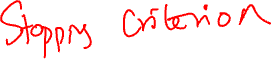 Stopping Criterion